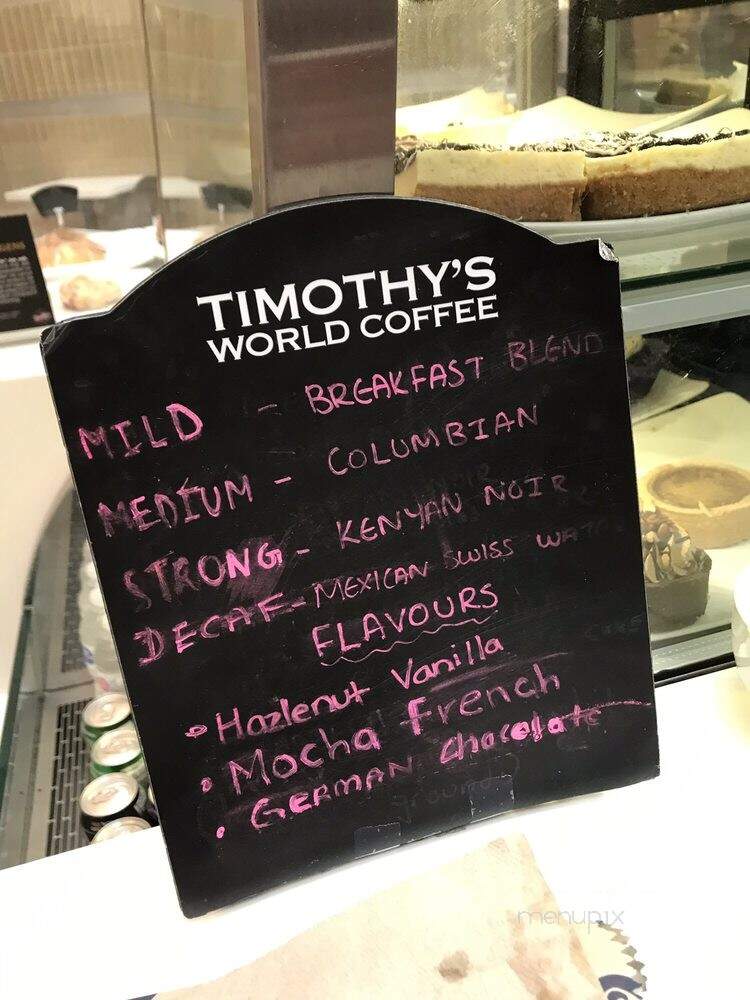 TIMOTHY'S
WORLD COFFEE
MILD - BREAKFAST BLEND
MEDIUM - COLUMBIAN
STRONG - KENYAN NOIR
DECAF - MEXICAN SWISS WAT
FLAVOURS
• Hazlenut Vanilla
• Mocha French
• GERMAN Chocolate
menupix